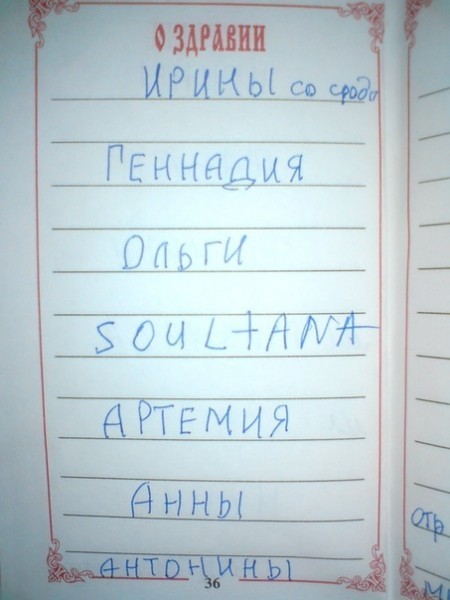 О ЗДРАВИИ
ИРИНЫ со сродн
ГЕННАДИЯ
ОЛЬГИ
SOULTANA
АРТЕМИЯ
АННЫ
АНТОНИНЫ
36
отр